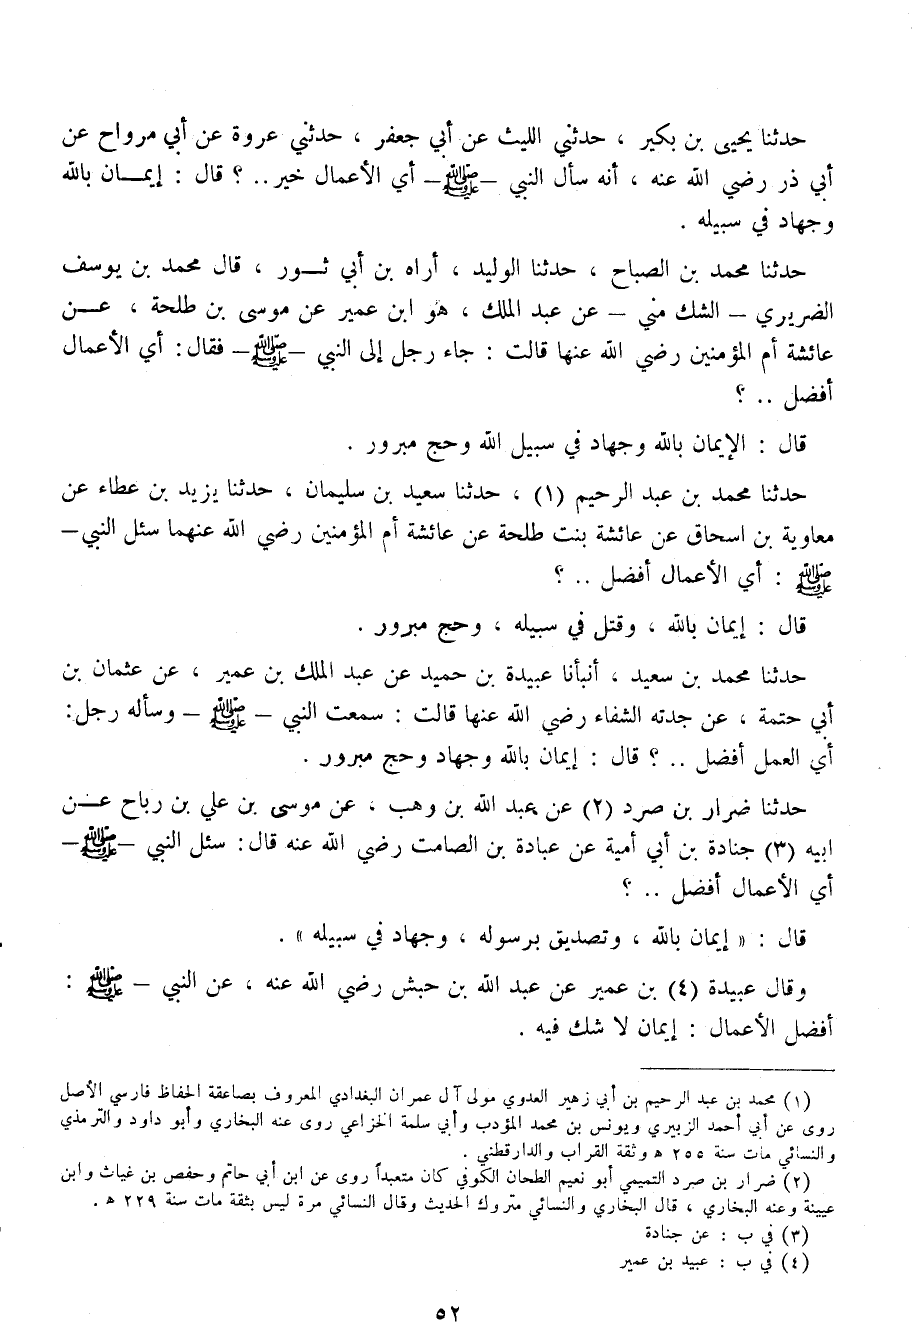 حدثنا يحيى بن بكير ، حدثني الليث عن أبي جعفر ، حدثني عروة عن أبي مرواح عن
أبي ذر رضي الله عنه ، أنه سأل النبي –ﷺ– أي الأعمال خير.. ؟ قال : إيمـان بالله
وجهاد في سبيله .
حدثنا محمد بن الصباح ، حدثنا الوليد ، أراه بن أبي ثـور ، قال محمد بن يوسف
الضريري – الشك مني – عن عبد الملك ، هو ابن عمير عن موسى بن طلحة ، عـن
عائشة أم المؤمنين رضي الله عنها قالت : جاء رجل إلى النبي –ﷺ– فقال: أي الأعمال
أفضل .. ؟
قال : الإيمان بالله وجهاد في سبيل الله وحج مبرور .
حدثنا محمد بن عبد الرحيم (١) ، حدثنا سعيد بن سليمان ، حدثنا يزيد بن عطاء عن
معاوية بن اسحاق عن عائشة بنت طلحة عن عائشة أم المؤمنين رضي الله عنهما سئل النبي–
ﷺ : أي الأعمال أفضل .. ؟
قال : إيمان بالله ، وقتل في سبيله ، وحج مبرور .
حدثنا محمد بن سعيد ، أنبأنا عبيدة بن حميد عن عبد الملك بن عمير ، عن عثمان بن
أبي حتمة ، عن جدته الشفاء رضي الله عنها قالت : سمعت النبي – ﷺ – وسأله رجل:
أي العمل أفضل .. ؟ قال : إيمان بالله وجهاد وحج مبرور .
حدثنا ضرار بن صرد (٢) عن عبد الله بن وهب ، عن موسى بن علي بن رباح عـن
ابيه (٣) جنادة بن أبي أمية عن عبادة بن الصامت رضي الله عنه قال: سئل النبي –ﷺ–
أي الأعمال أفضل .. ؟
قال : « إيمان بالله ، وتصديق برسوله ، وجهاد في سبيله » .
وقال عبيدة (٤) بن عمير عن عبد الله بن حبش رضي الله عنه ، عن النبي – ﷺ :
أفضل الأعمال : إيمان لا شك فيه .
(١) محمد بن عبد الرحيم بن أبي زهير العدوي مولى آل عمران البغدادي المعروف بصاعقة الحفاظ فارسي الأصل
روى عن أبي أحمد الزبيري ويونس بن محمد المؤدب وأبي سلمة الخزاعي روى عنه البخاري وأبو داود والترمذي
والنسائي مات سنة ٢٥٥ ه وثقة القراب والدارقطني .
(٢) ضرار بن صرد التميمي أبو نعيم الطحان الكوفي كان متعبداً روى عن ابن أبي حاتم وحفص بن غياث وابن
عيينة وعنه البخاري ، قال البخاري والنسائي متروك الحديث وقال النسائي مرة ليس بثقة مات سنة ٢٢٩ ه .
(٣) في ب : عن جنادة
(٤) في ب : عبيد بن عمير
٥٢